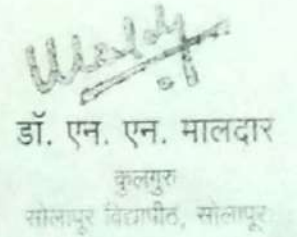 डॉ. एन. एन. मालदार
कुलगुरु
सोलापूर विद्यापीठ, सोलापूर